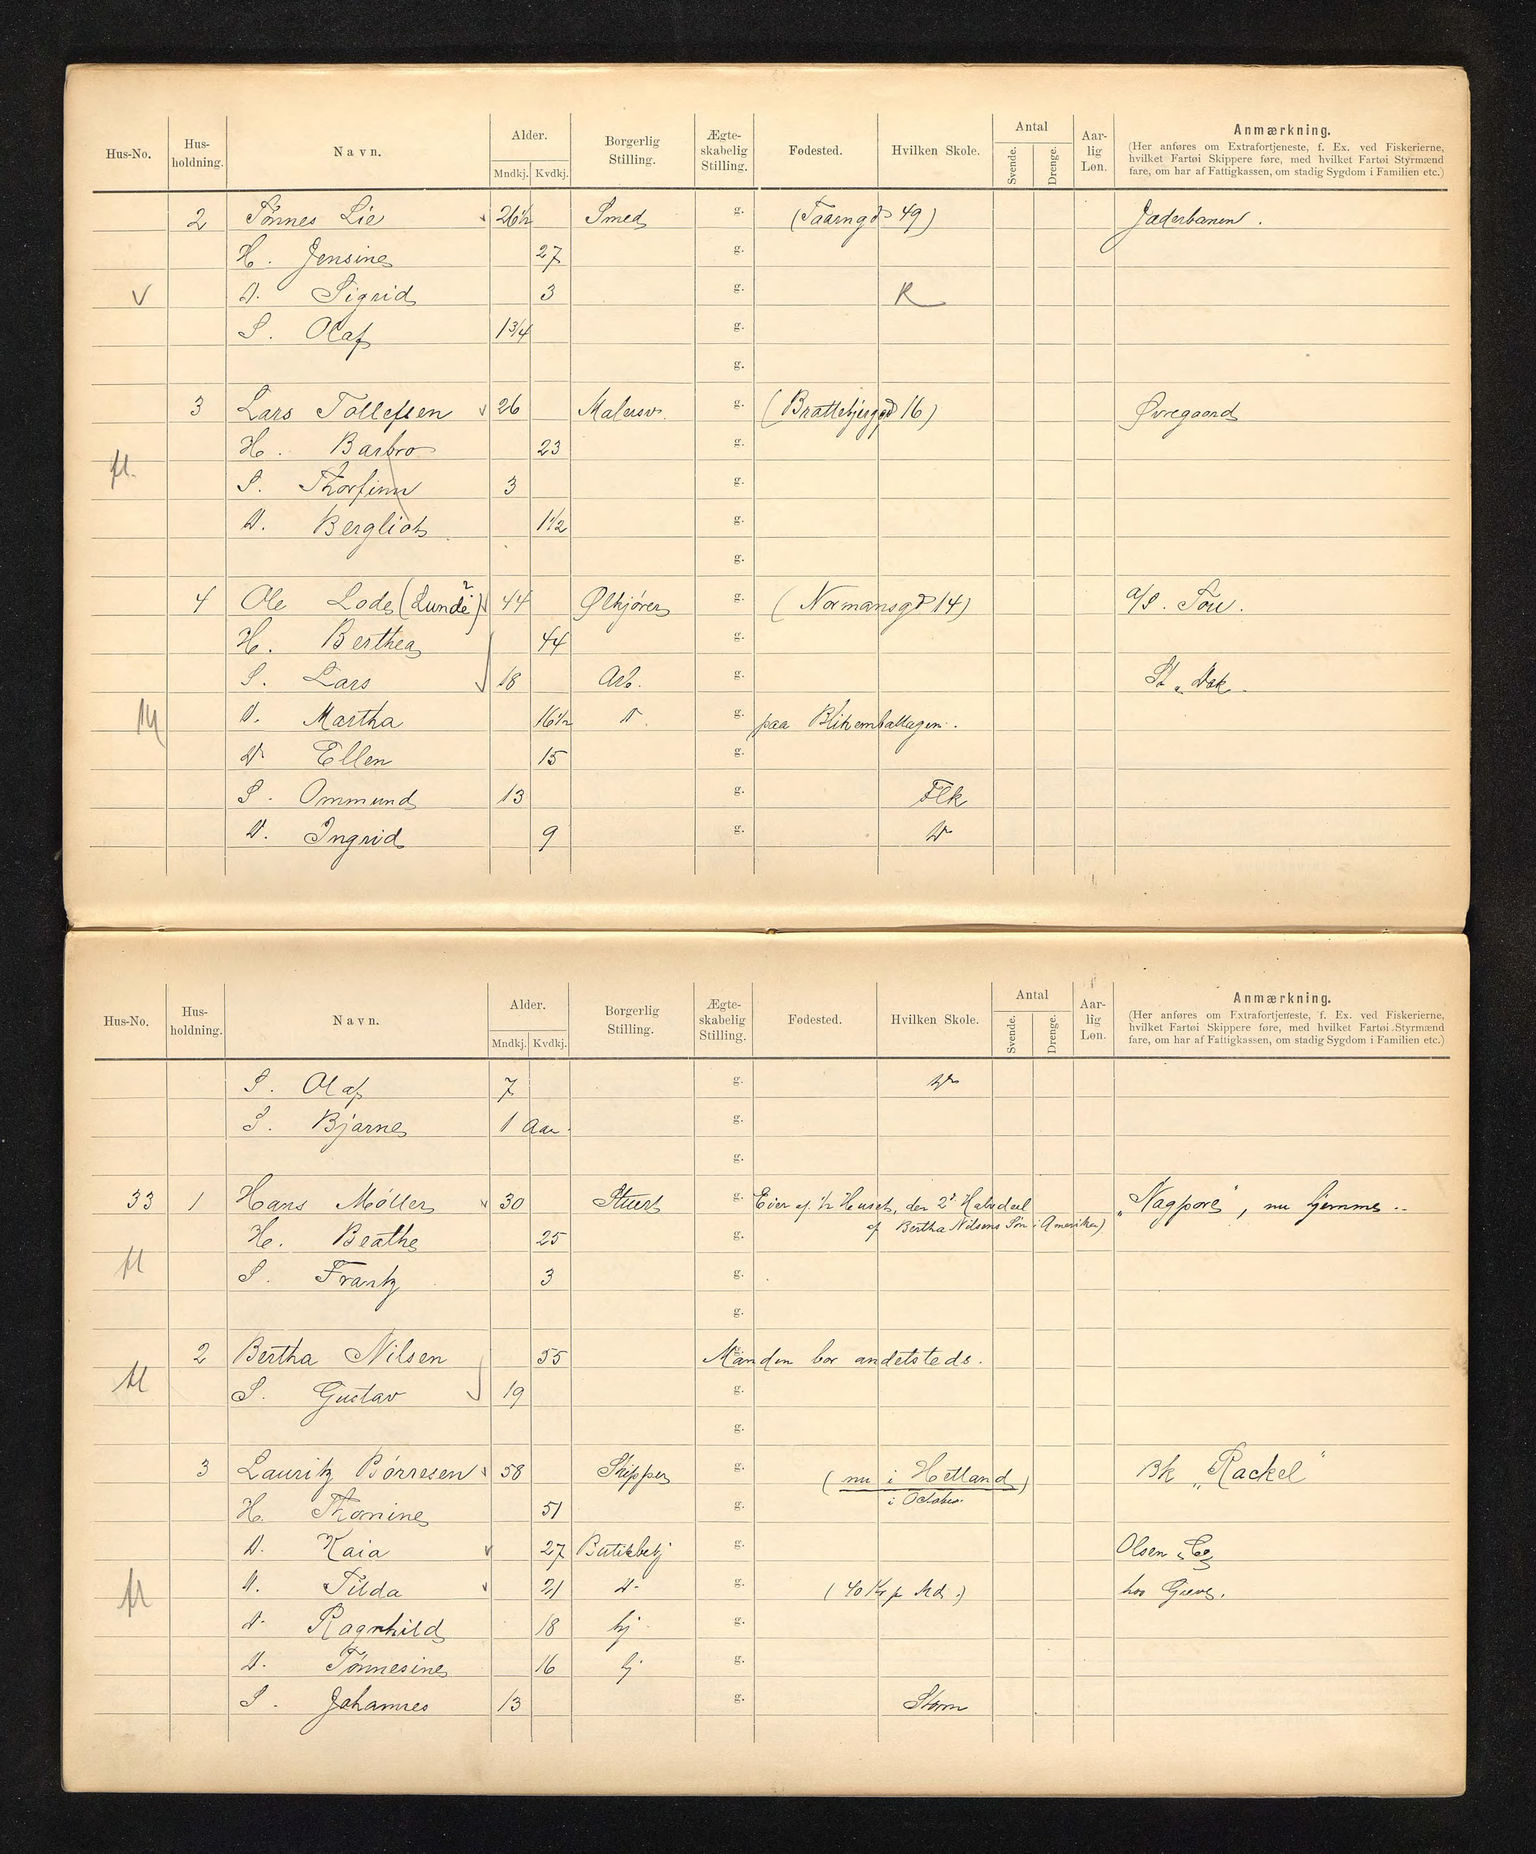 Hus-No. Hus-holdning. Navn. Alder. Mndkj. Kvdkj. Borgerlig Stilling. Ægte-skabelig Stilling. Fødested. Hvilken Skole. Antal Svende. Drenge. Aar-lig Løn. Anmærkning.
(Her anføres om Extrafortjeneste, f. Ex. ved Fiskerierne,
hvilket Fartøi Skippere føre, med hvilket Fartøi Styrmænd
fare, om har af Fattigkassen, om stadig Sygdom i Familien etc.)
2 Tønnes Lie 26½ Smed g. (Taarngd 49) Jæderbanen.
H. Jensine 27 g.
v D. Sigrid 3 g. R
S. Olaf 1¾ g.
g.
3 Lars Tollefsen 26 Malersv. g. (Brattebjerggd 16) Øvregaard
H. Barbro 23 g.
fl. S. Thorfinn 3 g.
D. Bergliot 1½ g.
g.
4 Ole Lode (Lunde?) 44 Ølkjører g. (Normansgd 14) A/S. Tou.
H. Berthea 44 g.
S. Lars 18 Arb. g. St. Dok.
D. Martha 16½ D. g. paa Blikemballagen.
D. Ellen 15 g.
S. Ommund 13 g. Flk
D. Ingrid 9 g. D
Hus-No. Hus-holdning. Navn. Alder. Mndkj. Kvdkj. Borgerlig Stilling. Ægte-skabelig Stilling. Fødested. Hvilken Skole. Antal Svende. Drenge. Aar-lig Løn. Anmærkning.
(Her anføres om Extrafortjeneste, f. Ex. ved Fiskerierne,
hvilket Fartøi Skippere føre, med hvilket Fartøi Styrmænd
fare, om har af Fattigkassen, om stadig Sygdom i Familien etc.)
S. Olaf 7 g. D
S. Bjarne 1 Aar. g.
g.
33 1 Hans Møller 30 Stuert g. Eier af ½ Huset, den 2d. Halvdeel „Nagpore", nu hjemme..
H. Beathe 25 g. af Bertha Nilsens Søn i Amerika)
fl S. Frantz 3 g.
g.
2 Bertha Nilsen 55 g. Manden bor andetsteds.
fl S. Gustav 19 g.
g.
3 Lauritz Børresen 58 Skipper g. (nu i Hetland) Bk „Rackel"
H. Thomine 51 g. i October.
D. Kaia 27 Butikbetj g. Olsen & Co
fl D. Tilda 21 D g. (40 Kr p Md.) hos Greve.
D. Ragnhild 18 hj g.
D. Tønnesine 16 hj g.
S. Johannes 13 g. Storm